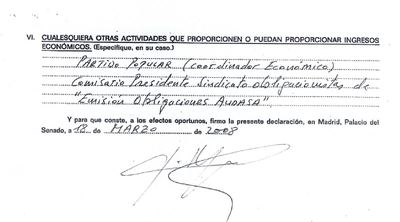 VI. CUALESQUIERA OTRAS ACTIVIDADES QUE PROPORCIONEN O PUEDAN PROPORCIONAR INGRESOS
ECONÓMICOS. (Especifique, en su caso.)
PARTIDO POPULAR (Coordinador Económico)
Comisario Presidente Sindicato obligacionistas de
"Emisión Obligaciones AUDASA"
Y para que conste, a los efectos oportunos, firmo la presente declaración, en Madrid, Palacio del
Senado, a 18 de MARZO de 2008